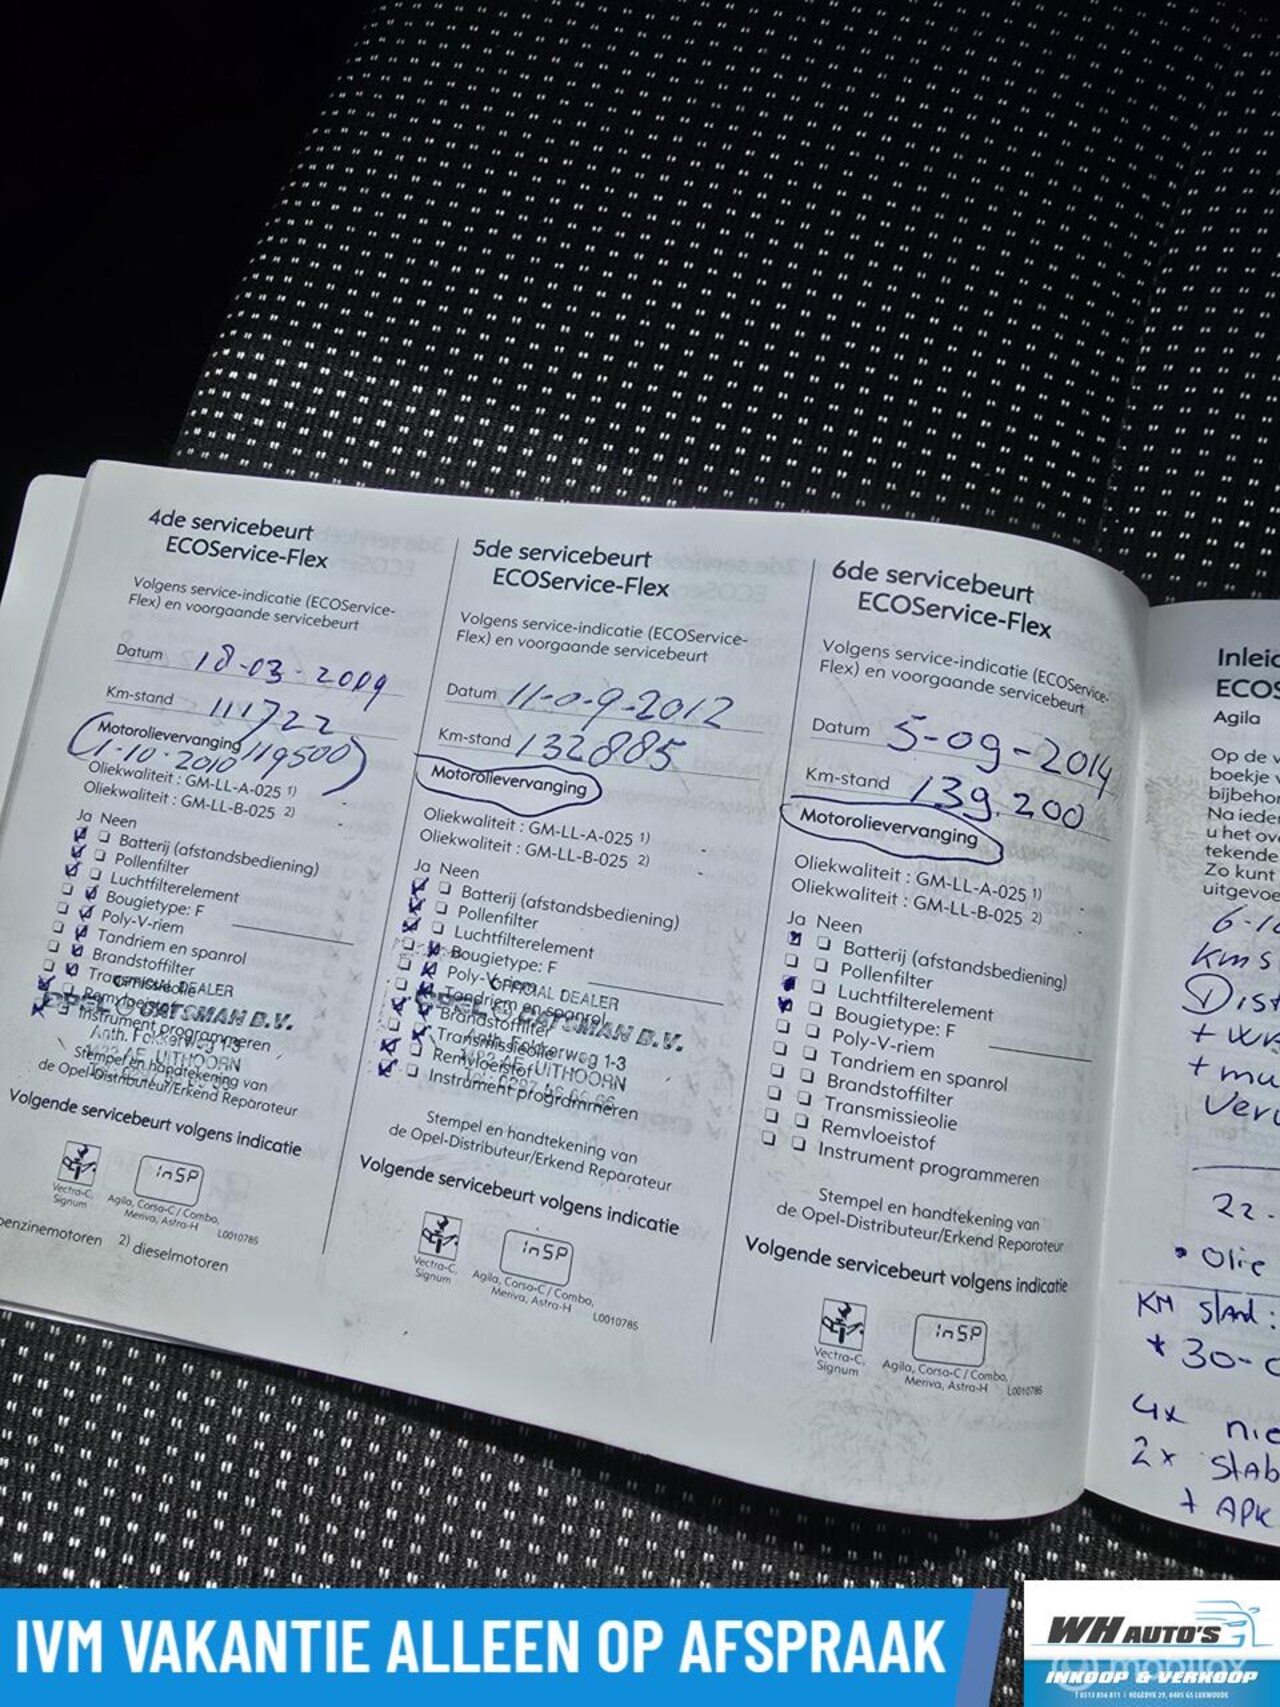 4de servicebeurt
ECOService-Flex
Volgens service-indicatie (ECOService-
Flex) en voorgaande servicebeurt
Datum 18-03-2009
Km-stand 111722
Motorolievervanging
1-10-2010 119500
Oliekwaliteit : GM-LL-A-025 1)
Oliekwaliteit : GM-LL-B-025 2)
Ja Neen
Batterij (afstandsbediening)
Pollenfilter
Luchtfilterelement
Bougietype: F
Poly-V-riem
Tandriem en spanrol
Brandstoffilter
Transmissieolie
Remvloeistof
Instrument programmeren
OFFICIAL DEALER
OPEL CATSMAN B.V.
Anth. Fokkerweg 1-3
1422 AE UITHOORN
Stempel en handtekening van
de Opel-Distributeur/Erkend Reparateur
Volgende servicebeurt volgens indicatie
InSP
Vectra-C,
Signum
Agila, Corsa-C / Combo,
Meriva, Astra-H
L0010785
benzinemotoren 2) dieselmotoren
5de servicebeurt
ECOService-Flex
Volgens service-indicatie (ECOService-
Flex) en voorgaande servicebeurt
Datum 11-0-9-2012
Km-stand 132885
Motorolievervanging
Oliekwaliteit : GM-LL-A-025 1)
Oliekwaliteit : GM-LL-B-025 2)
Ja Neen
Batterij (afstandsbediening)
Pollenfilter
Luchtfilterelement
Bougietype: F
Poly-V-riem
Tandriem en spanrol
Brandstoffilter
Transmissieolie
Remvloeistof
Instrument programmeren
OFFICIAL DEALER
OPEL CATSMAN B.V.
Anth. Fokkerweg 1-3
1422 AE UITHOORN
Stempel en handtekening van
de Opel-Distributeur/Erkend Reparateur
Volgende servicebeurt volgens indicatie
InSP
Vectra-C,
Signum
Agila, Corsa-C / Combo,
Meriva, Astra-H
L0010785
6de servicebeurt
ECOService-Flex
Volgens service-indicatie (ECOService-
Flex) en voorgaande servicebeurt
Datum 5-09-2014
Km-stand 139.200
Motorolievervanging
Oliekwaliteit : GM-LL-A-025 1)
Oliekwaliteit : GM-LL-B-025 2)
Ja Neen
Batterij (afstandsbediening)
Pollenfilter
Luchtfilterelement
Bougietype: F
Poly-V-riem
Tandriem en spanrol
Brandstoffilter
Transmissieolie
Remvloeistof
Instrument programmeren
Stempel en handtekening van
de Opel-Distributeur/Erkend Reparateur
Volgende servicebeurt volgens indicatie
InSP
Vectra-C,
Signum
Agila, Corsa-C / Combo,
Meriva, Astra-H
L0010785
Inleid
ECOS
Agila
Op de v
boekje v
bijbehor
Na ieder
u het ov
tekende
Zo kunt
uitgevoe
6-10
Kms
Dist
+ wa
+ mu
Verv
22-
• Olie
KM stand:
* 30-0
4x nie
2x stab
+ APK
IVM VAKANTIE ALLEEN OP AFSPRAAK
WH AUTO'S
INKOOP & VERKOOP
T 0513 856 811 | HEGEDYK 29, 8405 GS LUXWOUDE